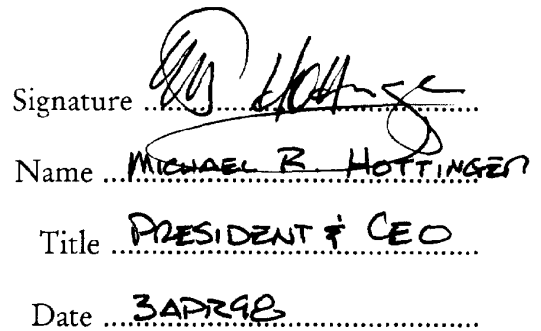 Signature ... Hottinger
Name ... MICHAEL R. HOTTINGER
Title ... PRESIDENT & CEO
Date ... 3APR98